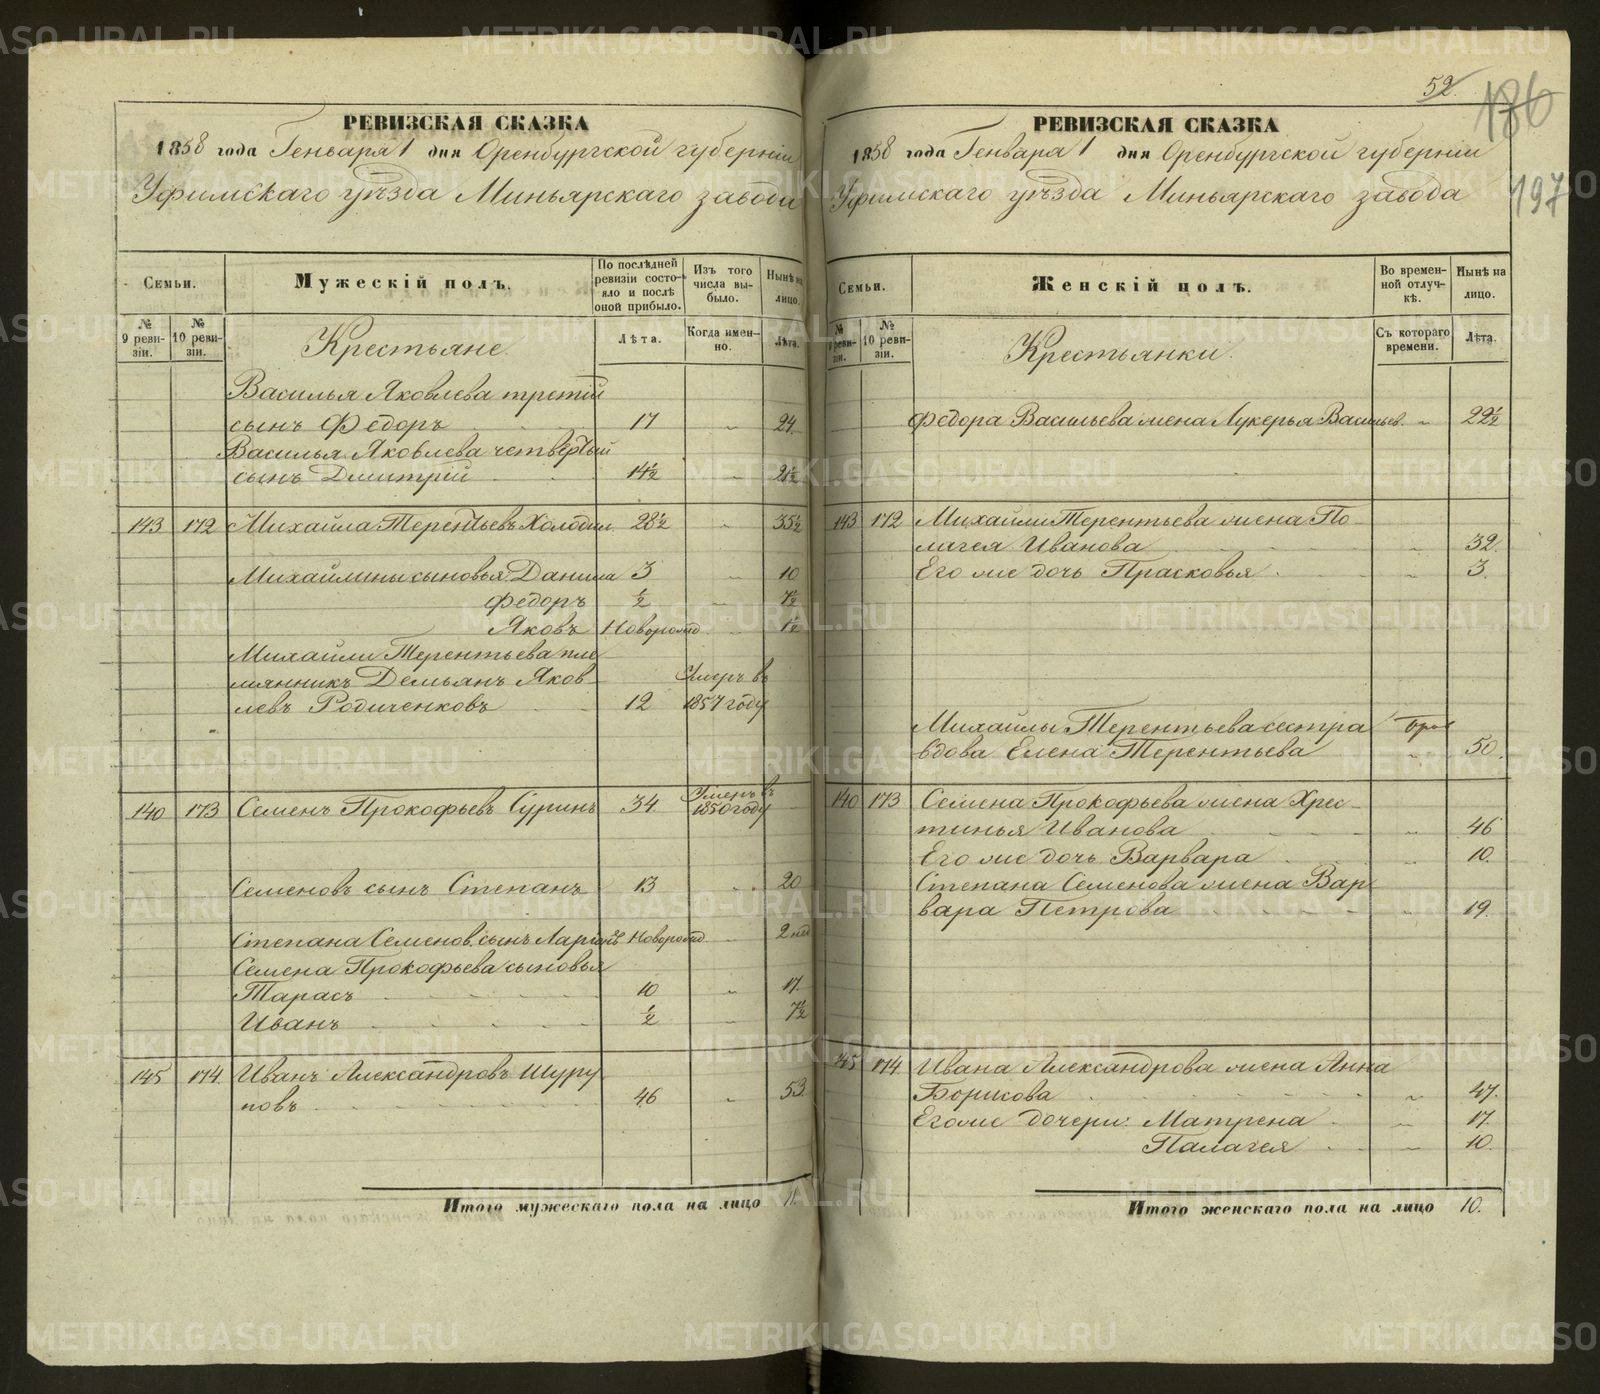 52.
186
197
РЕВИЗСКАЯ СКАЗКА
1858 года Генваря 1 дня Оренбургской губерніи
Уфимскаго уѣзда Миньярскаго завода
Семьи.
Мужескій полъ.
По послѣдней ревизіи состояло и послѣ оной прибыло.
Изъ того числа выбыло.
Нынѣ на лицо.
№ 9 ревизіи.
№ 10 ревизіи.
Крестьяне
Лѣта.
Когда именно.
Лѣта.
Василья Яковлева третій
сынъ Федоръ 17 „ 24.
Василья Яковлева четвертый
сынъ Дмитрій 14½ „ 21½
143 172 Михайла Терентьевъ Холодил 28½ „ 35½
Михайлины сыновья: Данила 3 „ 10
Федоръ ½ „ 7½
Яковъ Новорожд. „ 1½
Михайлы Терентьева пле
мянникъ Демьянъ Яков
левъ Родиченковъ 12 Умеръ въ 1857 году
140 173 Семенъ Прокофьевъ Суринъ 34 Умеръ въ 1850 году
Семеновъ сынъ Степанъ 13 „ 20
Степана Семенов. сынъ Ларіонъ Новорожд. 2 нед
Семена Прокофьева сыновья
Тарасъ 10 „ 17.
Иванъ ½ „ 7½
145 174 Иванъ Александровъ Шуру
повъ 46 „ 53
Итого мужескаго пола на лицо 11.
РЕВИЗСКАЯ СКАЗКА
1858 года Генваря 1 дня Оренбургской губерніи
Уфимскаго уѣзда Миньярскаго завода
Семьи.
Женскій полъ.
Во временной отлучкѣ.
Нынѣ на лицо.
№ 9 ревизіи.
№ 10 ревизіи.
Крестьянки.
Съ котораго времени.
Лѣта.
Федора Васильева жена Лукерья Васильев. „ 22½
143 172 Михайлы Терентьева жена Пе
лагея Иванова „ 32.
Его же дочь Прасковья „ 3.
Михайлы Терентьева сестра
вдова Елена Терентьева „ 50.
140 173 Семена Прокофьева жена Хрес
тинья Иванова „ 46
Его же дочь Варвара „ 10.
Степана Семенова жена Вар
вара Петрова „ 19.
145 174. Ивана Александрова жена Анна
Борисова „ 47.
Его же дочери: Матрена „ 17.
Палагея „ 10.
Итого женскаго пола на лицо 10.
METRIKI.GASO-URAL.RU